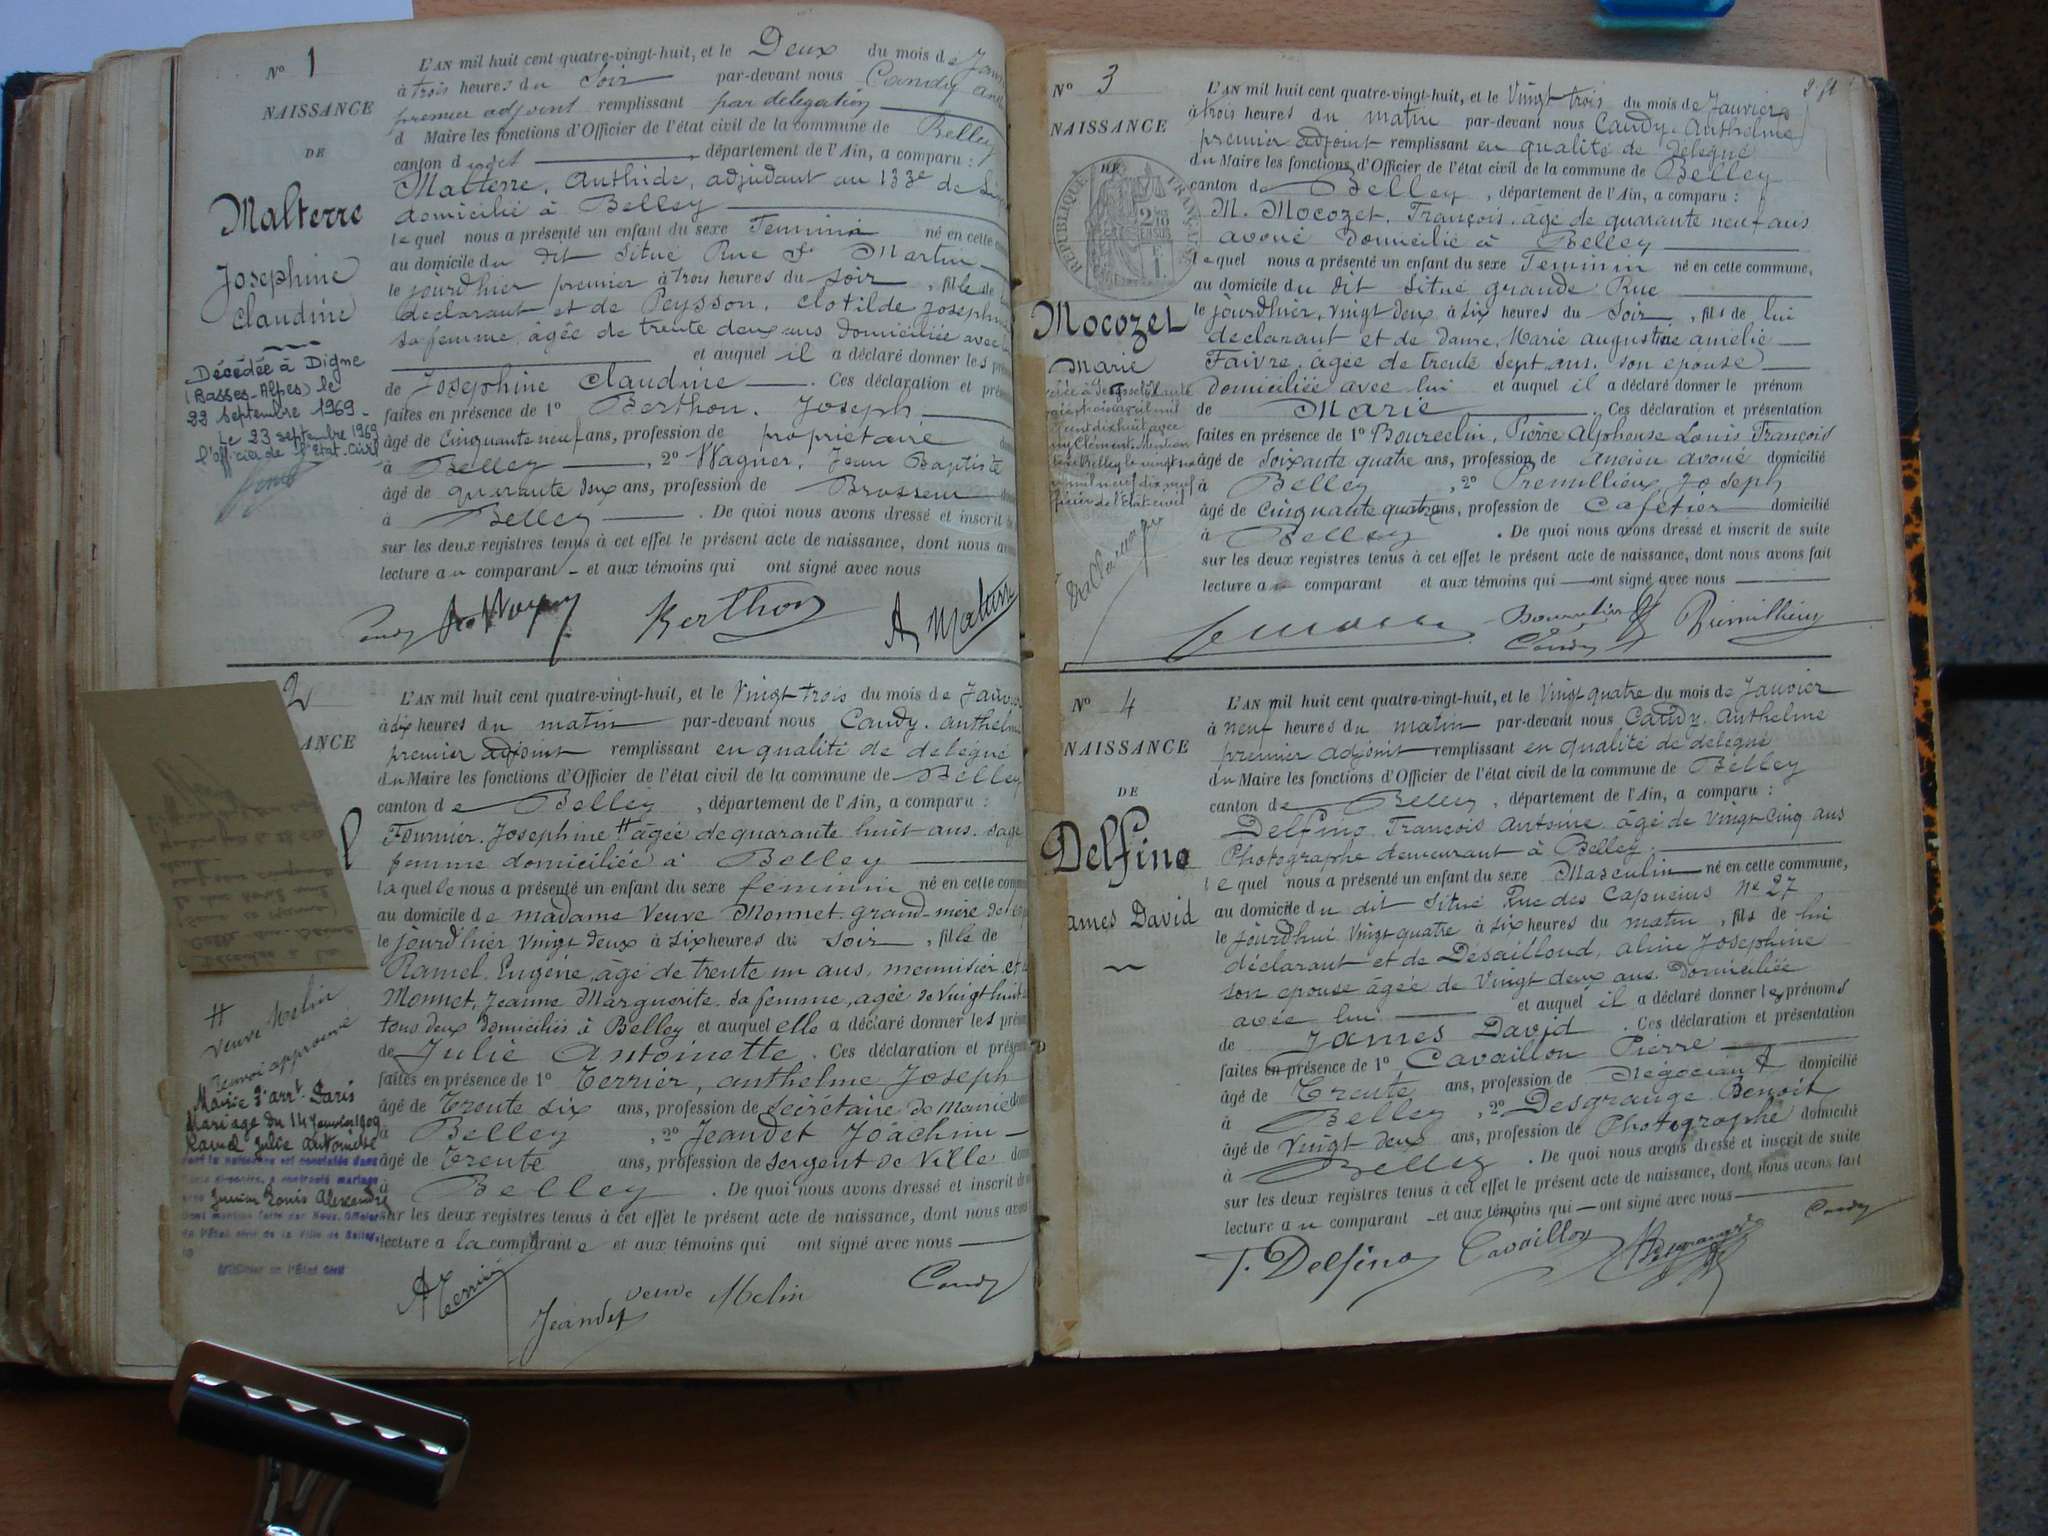 N° 1
NAISSANCE
DE
Malterre
Josephine
Claudine
Décédée à Digne
(Basses-Alpes) le
22 septembre 1969-
Le 23 septembre 1969
l'officier de l'Etat-Civil
L'AN mil huit cent quatre-vingt-huit, et le Deux du mois de
à trois heures du Soir par-devant nous Candy
premier adjoint remplissant par delegation
d Maire les fonctions d'Officier de l'état civil de la commune de Belley
canton d , département de l'Ain, a comparu :
Malterre, Anthide, adjudant au 133e de
domicilié à Belley
lequel nous a présenté un enfant du sexe Feminin né en cette
au domicile du dit situé Rue St Martin
le jourd'hier premier à trois heures du soir , fille de
déclarant et de Peysson, Clotilde Josephine
sa femme, âgée de trente deux ans domiciliée avec
et auquel il a déclaré donner les
de Josephine Claudine . Ces déclaration et
faites en présence de 1° Berthon, Joseph
âgé de Cinquante neuf ans, profession de propriétaire
à Belley , 2° Wagner, Jean Baptiste
âgé de quarante deux ans, profession de Brasseur
à Belley . De quoi nous avons dressé et inscrit
sur les deux registres tenus à cet effet le présent acte de naissance, dont nous
lecture au comparant - et aux témoins qui ont signé avec nous
Candy Berthon A Malterre
2
ANCE
#
veuve Melin
renvoi approuvé
Mairie 3e arrt Paris
Mariage du 14 Janvier 1909
Ramel Julie Antoinette
Junian Louis Alexandre
L'Officier de l'État Civil
L'AN mil huit cent quatre-vingt-huit, et le Vingt trois du mois de Janvier
à dix heures du matin par-devant nous Candy. anthelme
premier adjoint remplissant en qualité de délégué
du Maire les fonctions d'Officier de l'état civil de la commune de Belley
canton de Belley , département de l'Ain, a comparu :
Fournier. Josephine # âgée de quarante huit ans. sage
femme domiciliée à Belley
laquelle nous a présenté un enfant du sexe féminin né en cette
au domicile de madame Veuve Monnet grand-mère de
le jourd'hier vingt deux à six heures du soir , fille de
Ramel. Eugène, âgé de trente un ans, menuisier et
Monnet, Jeanne Marguerite. sa femme, agée de vingt huit
tous deux domiciliés à Belley et auquel elle a déclaré donner les
de Julie Antoinette . Ces déclaration et
faites en présence de 1° Terrier, anthelme Joseph
âgé de Trente six ans, profession de secrétaire de Mairie
à Belley , 2° Jeandet Joachim
âgé de Trente ans, profession de sergent de Ville
à Belley . De quoi nous avons dressé et inscrit
sur les deux registres tenus à cet effet le présent acte de naissance, dont nous avons
lecture a la comparante et aux témoins qui ont signé avec nous
A Terrier Jeandet veuve Melin Candy
N° 3
NAISSANCE
DE
RÉPUBLIQUE FRANÇAISE
Mocozet
Marie
L'AN mil huit cent quatre-vingt-huit, et le Vingt trois du mois de Janvier
à trois heures du matin par-devant nous Candy. Anthelme
premier adjoint remplissant en qualité de délégué
du Maire les fonctions d'Officier de l'état civil de la commune de Belley
canton de Belley , département de l'Ain, a comparu :
M. Mocozet, François. âgé de quarante neuf ans
avoué domicilié à Belley
lequel nous a présenté un enfant du sexe Feminin né en cette commune,
au domicile du dit situé grande Rue
le jourd'hier, vingt deux à six heures du Soir , fils de lui
déclarant et de Dame, Marie augustine amélie
Faivre, agée de trente sept ans. son epouse
domiciliée avec lui et auquel il a déclaré donner le prénom
de Marie . Ces déclaration et présentation
faites en présence de 1° Bourcelin, Pierre Alphonse Louis François
âgé de soixante quatre ans, profession de ancien avoué domicilié
à Belley , 2° Premillieux Joseph
âgé de Cinquante quatre ans, profession de Cafétier domicilié
à Belley . De quoi nous avons dressé et inscrit de suite
sur les deux registres tenus à cet effet le présent acte de naissance, dont nous avons fait
lecture a comparant et aux témoins qui ont signé avec nous
Candy
N° 4
NAISSANCE
DE
Delfino
ames David
L'AN mil huit cent quatre-vingt-huit, et le Vingt quatre du mois de Janvier
à neuf heures du matin par-devant nous Candy. Anthelme
premier adjoint remplissant en qualité de délégué
du Maire les fonctions d'Officier de l'état civil de la commune de Belley
canton de Belley , département de l'Ain, a comparu :
Delfino François Antoine âgé de vingt cinq ans
Photographe demeurant à Belley
lequel nous a présenté un enfant du sexe Masculin né en cette commune,
au domicile du dit situé Rue des Capucins N° 27
le jourd'hui vingt quatre à six heures du matin , fils de lui
déclarant et de Desailloud, aline Josephine
son epouse âgée de vingt deux ans. Domiciliée
avec lui et auquel il a déclaré donner les prénoms
de James David . Ces déclaration et présentation
faites en présence de 1° Cavaillon Pierre
âgé de Trente ans, profession de Negociant domicilié
à Belley , 2° Desgrange Benoit
âgé de vingt deux ans, profession de Photographe domicilié
à Belley . De quoi nous avons dressé et inscrit de suite
sur les deux registres tenus à cet effet le présent acte de naissance, dont nous avons fait
lecture au comparant - et aux témoins qui - ont signé avec nous
F. Delfino Cavaillon Candy